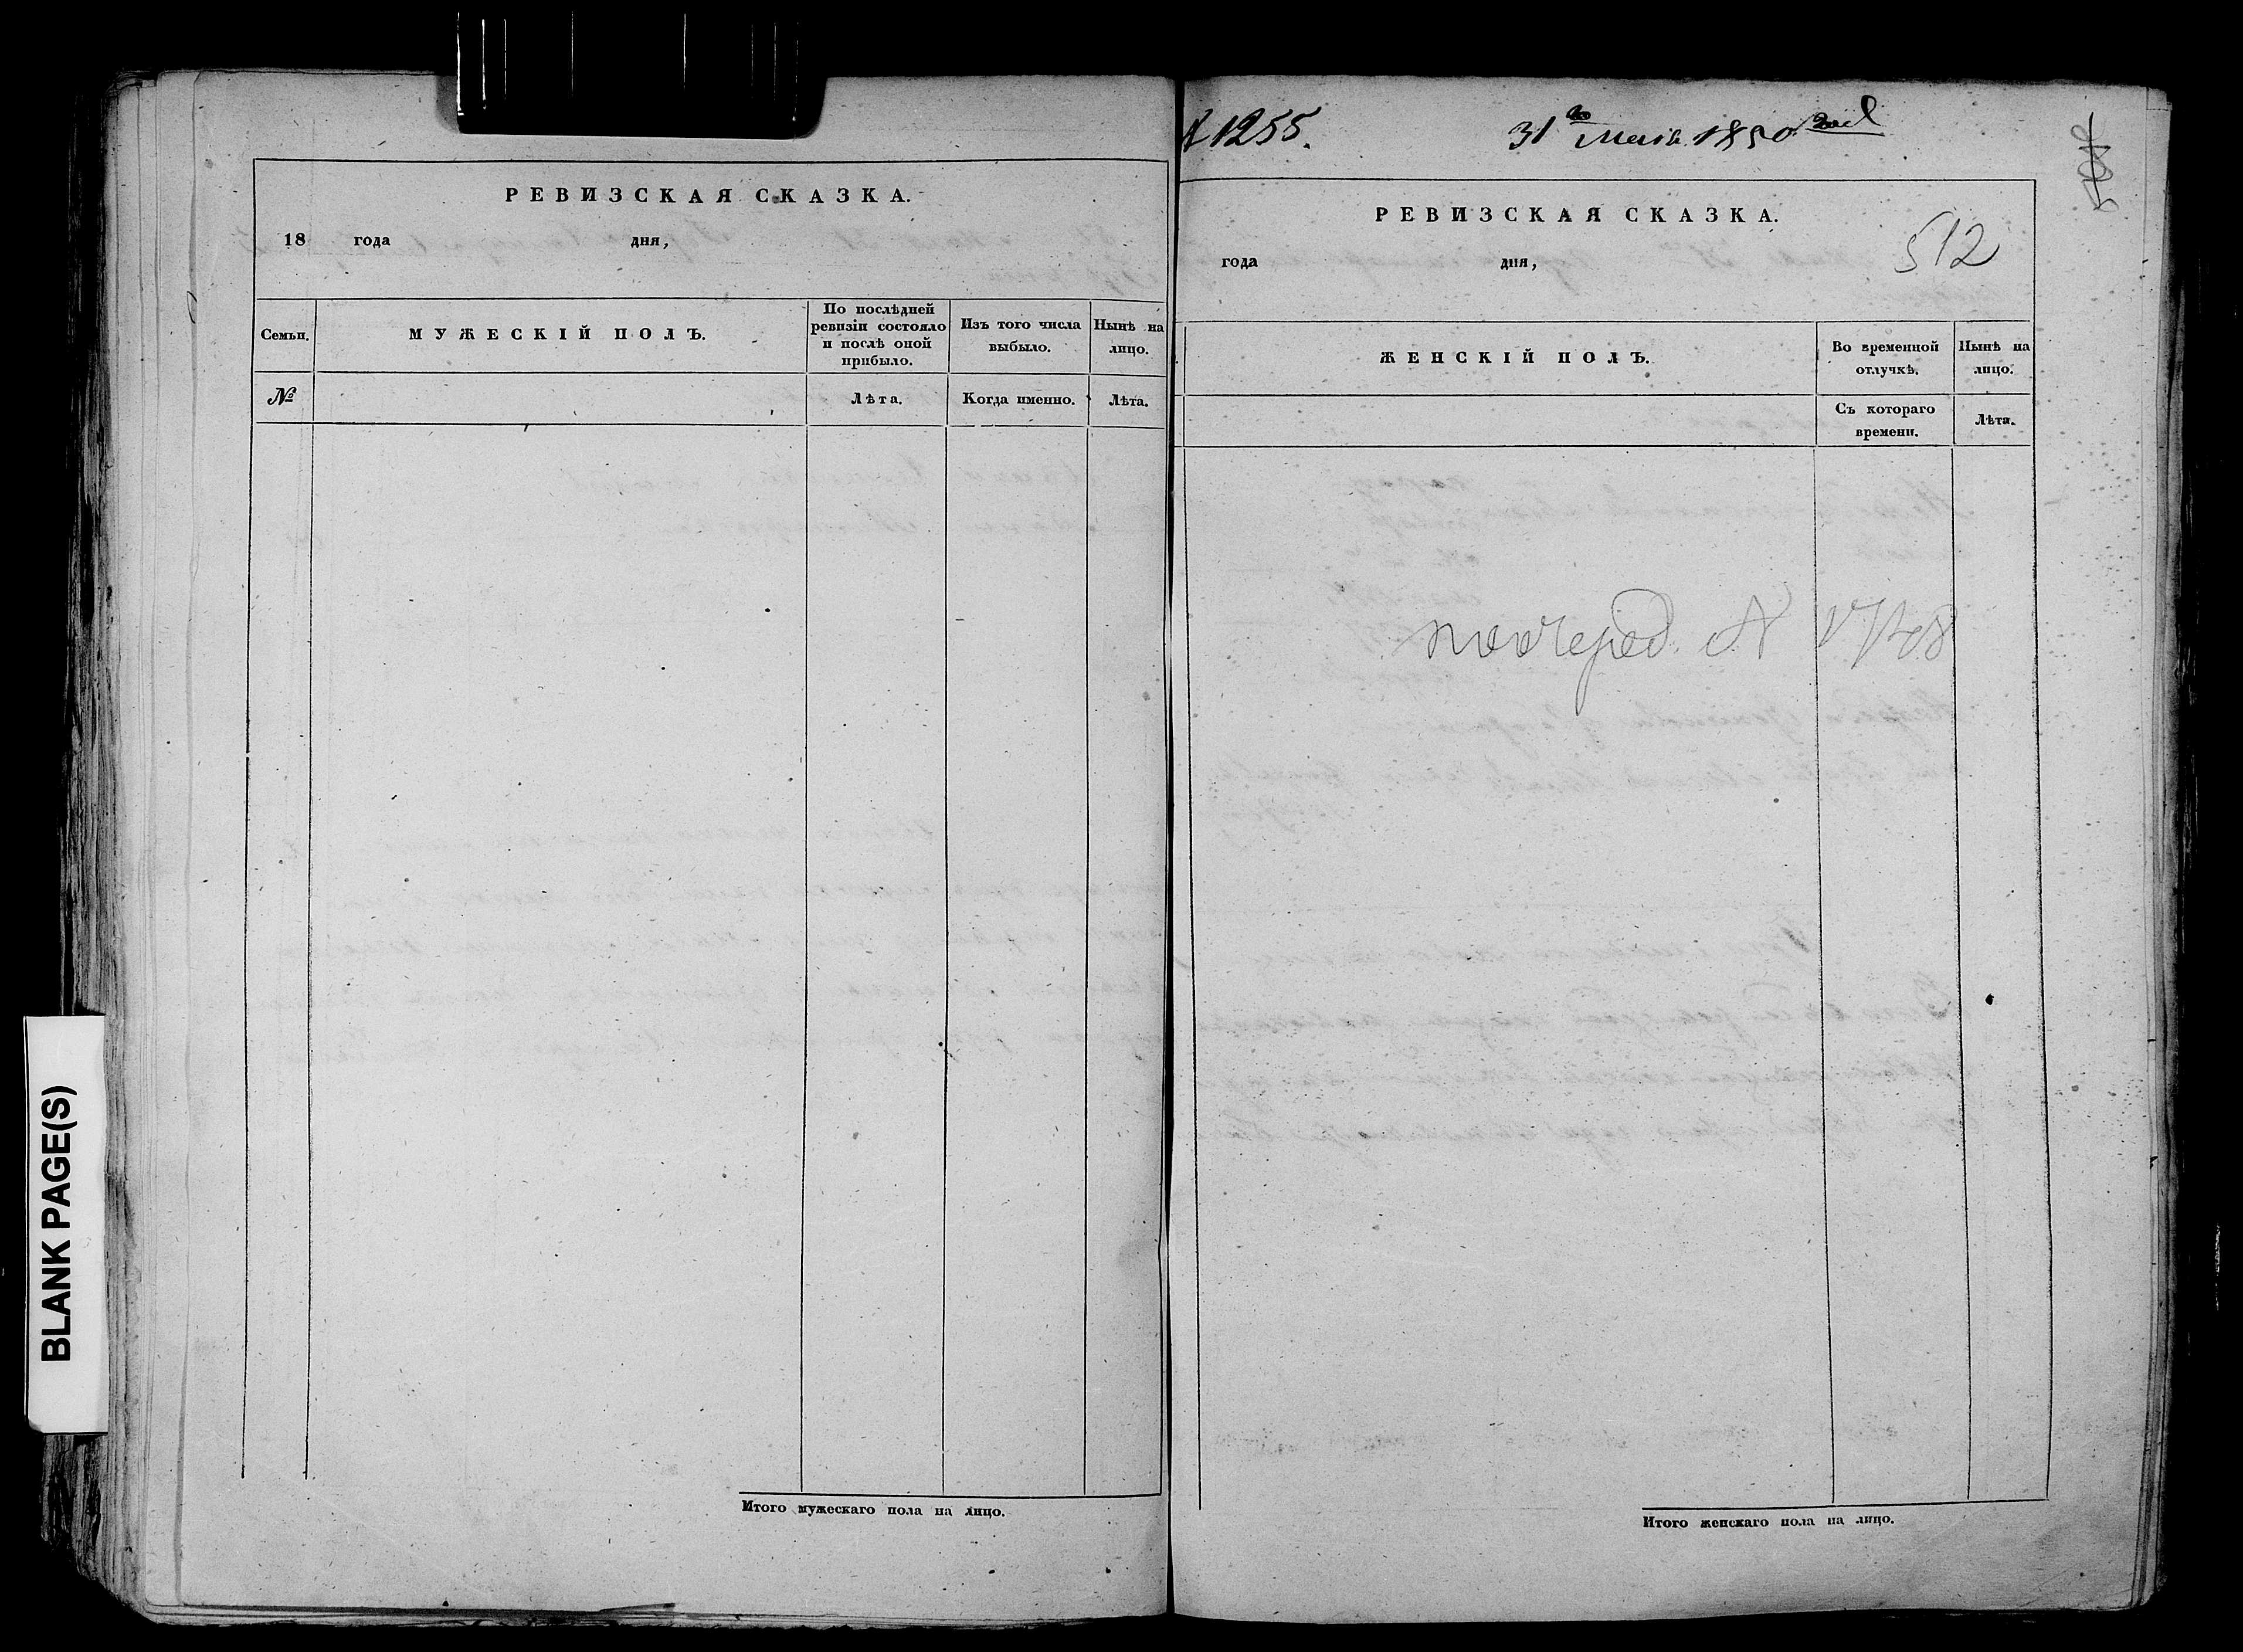 РЕВИЗСКАЯ СКАЗКА.
18 года дня,
Семьи.
МУЖЕСКІЙ ПОЛЪ.
По послѣдней ревизіи состояло и послѣ оной прибыло.
Изъ того числа выбыло.
Нынѣ на лицо.
№
Лѣта.
Когда именно.
Лѣта.
Итого мужескаго пола на лицо.
№ 1255.
31го Маія 1850 год
РЕВИЗСКАЯ СКАЗКА.
512
года дня,
ЖЕНСКІЙ ПОЛЪ.
Во временной отлучкѣ.
Нынѣ на лицо.
Съ котораго времени.
Лѣта.
Итого женскаго пола на лицо.
BLANK PAGE(S)